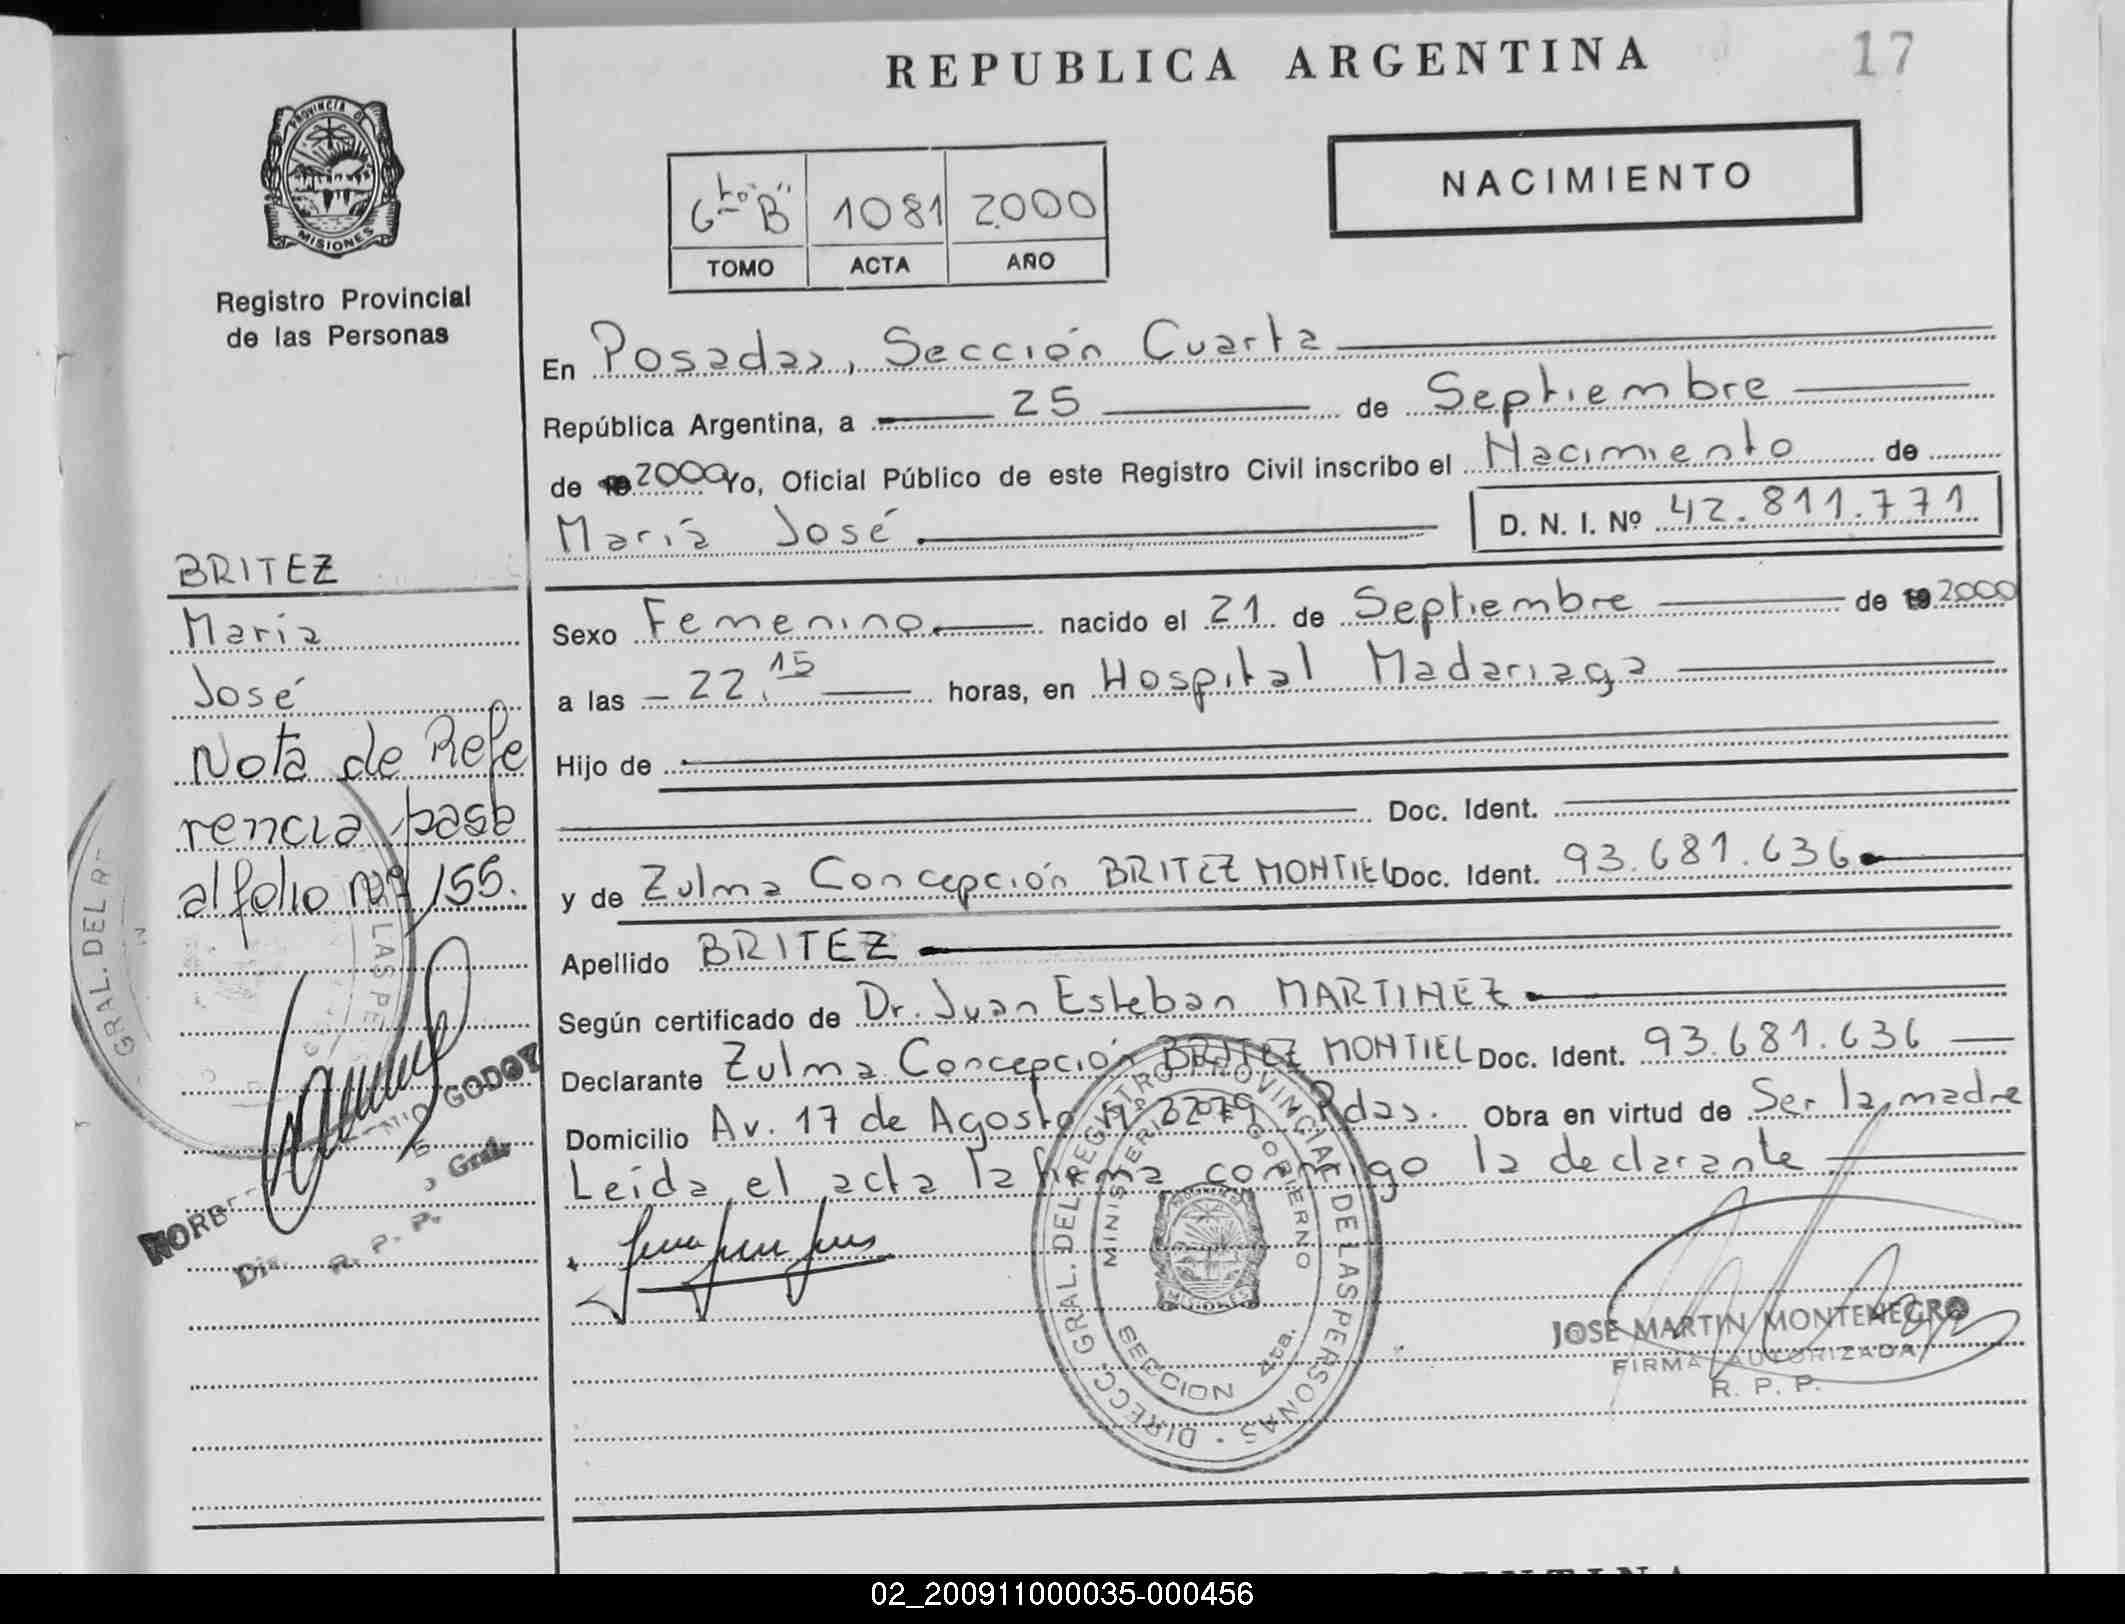 REPUBLICA ARGENTINA
17
PROVINCIA DE
MISIONES
Registro Provincial
de las Personas
6to "B" 1081 2000
TOMO ACTA AÑO
NACIMIENTO
En Posadas, Sección Cuarta
República Argentina, a 25 de Septiembre
de 2000 Yo, Oficial Público de este Registro Civil inscribo el Nacimiento de
María José D. N. I. Nº 42.811.771
Sexo Femenino nacido el 21 de Septiembre de 2000
a las 22.15 horas, en Hospital Madariaga
Hijo de
Doc. Ident.
y de Zulma Concepción BRITEZ MONTIEL Doc. Ident. 93.681.636
Apellido BRITEZ
Según certificado de Dr. Juan Esteban MARTINEZ
Declarante Zulma Concepción BRITEZ MONTIEL Doc. Ident. 93.681.636
Domicilio Av. 17 de Agosto Nº Pdas. Obra en virtud de Ser la madre
Leida el acta la firma conmigo la declarante
BRITEZ
María
José
Nota de Refe
rencia pase
al folio Nº 155.
GRAL. DEL R
LAS PE
GODOY
Gral.
R. P. P.
DIRECC. GRAL. DEL REGISTRO PROVINCIAL DE LAS PERSONAS
MINISTERIO DE GOBIERNO
MISIONES
SECCION 4ta.
JOSE MARTIN MONTENEGRO
FIRMA AUTORIZADA
R. P. P.
02_200911000035-000456